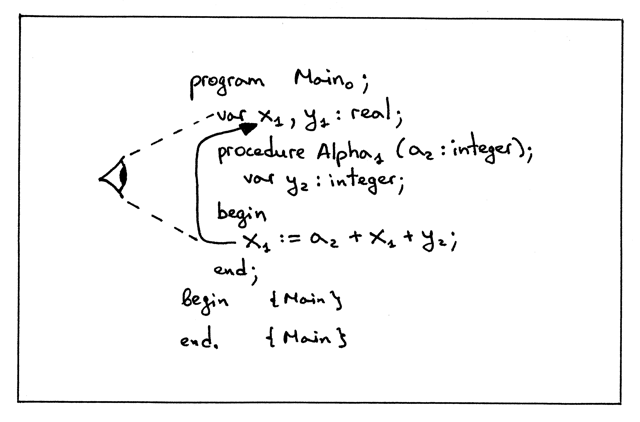 program Main₀;
var x₁, y₁ : real;
procedure Alpha₁ (a₂ : integer);
var y₂ : integer;
begin
x₁ := a₂ + x₁ + y₂;
end;
Begin {Main}
end. {Main}